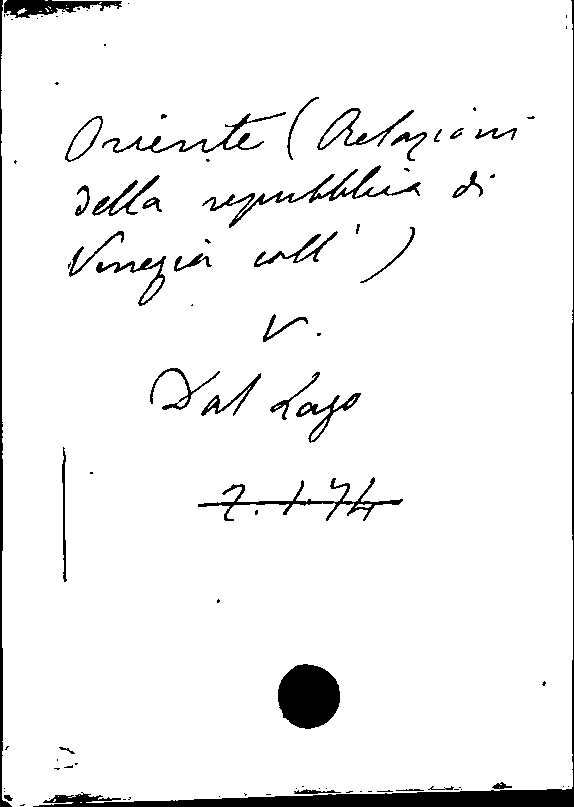 Oriente (Relazioni
della repubblica di
Venezia coll')
V.
Dal Lago
2.1.74